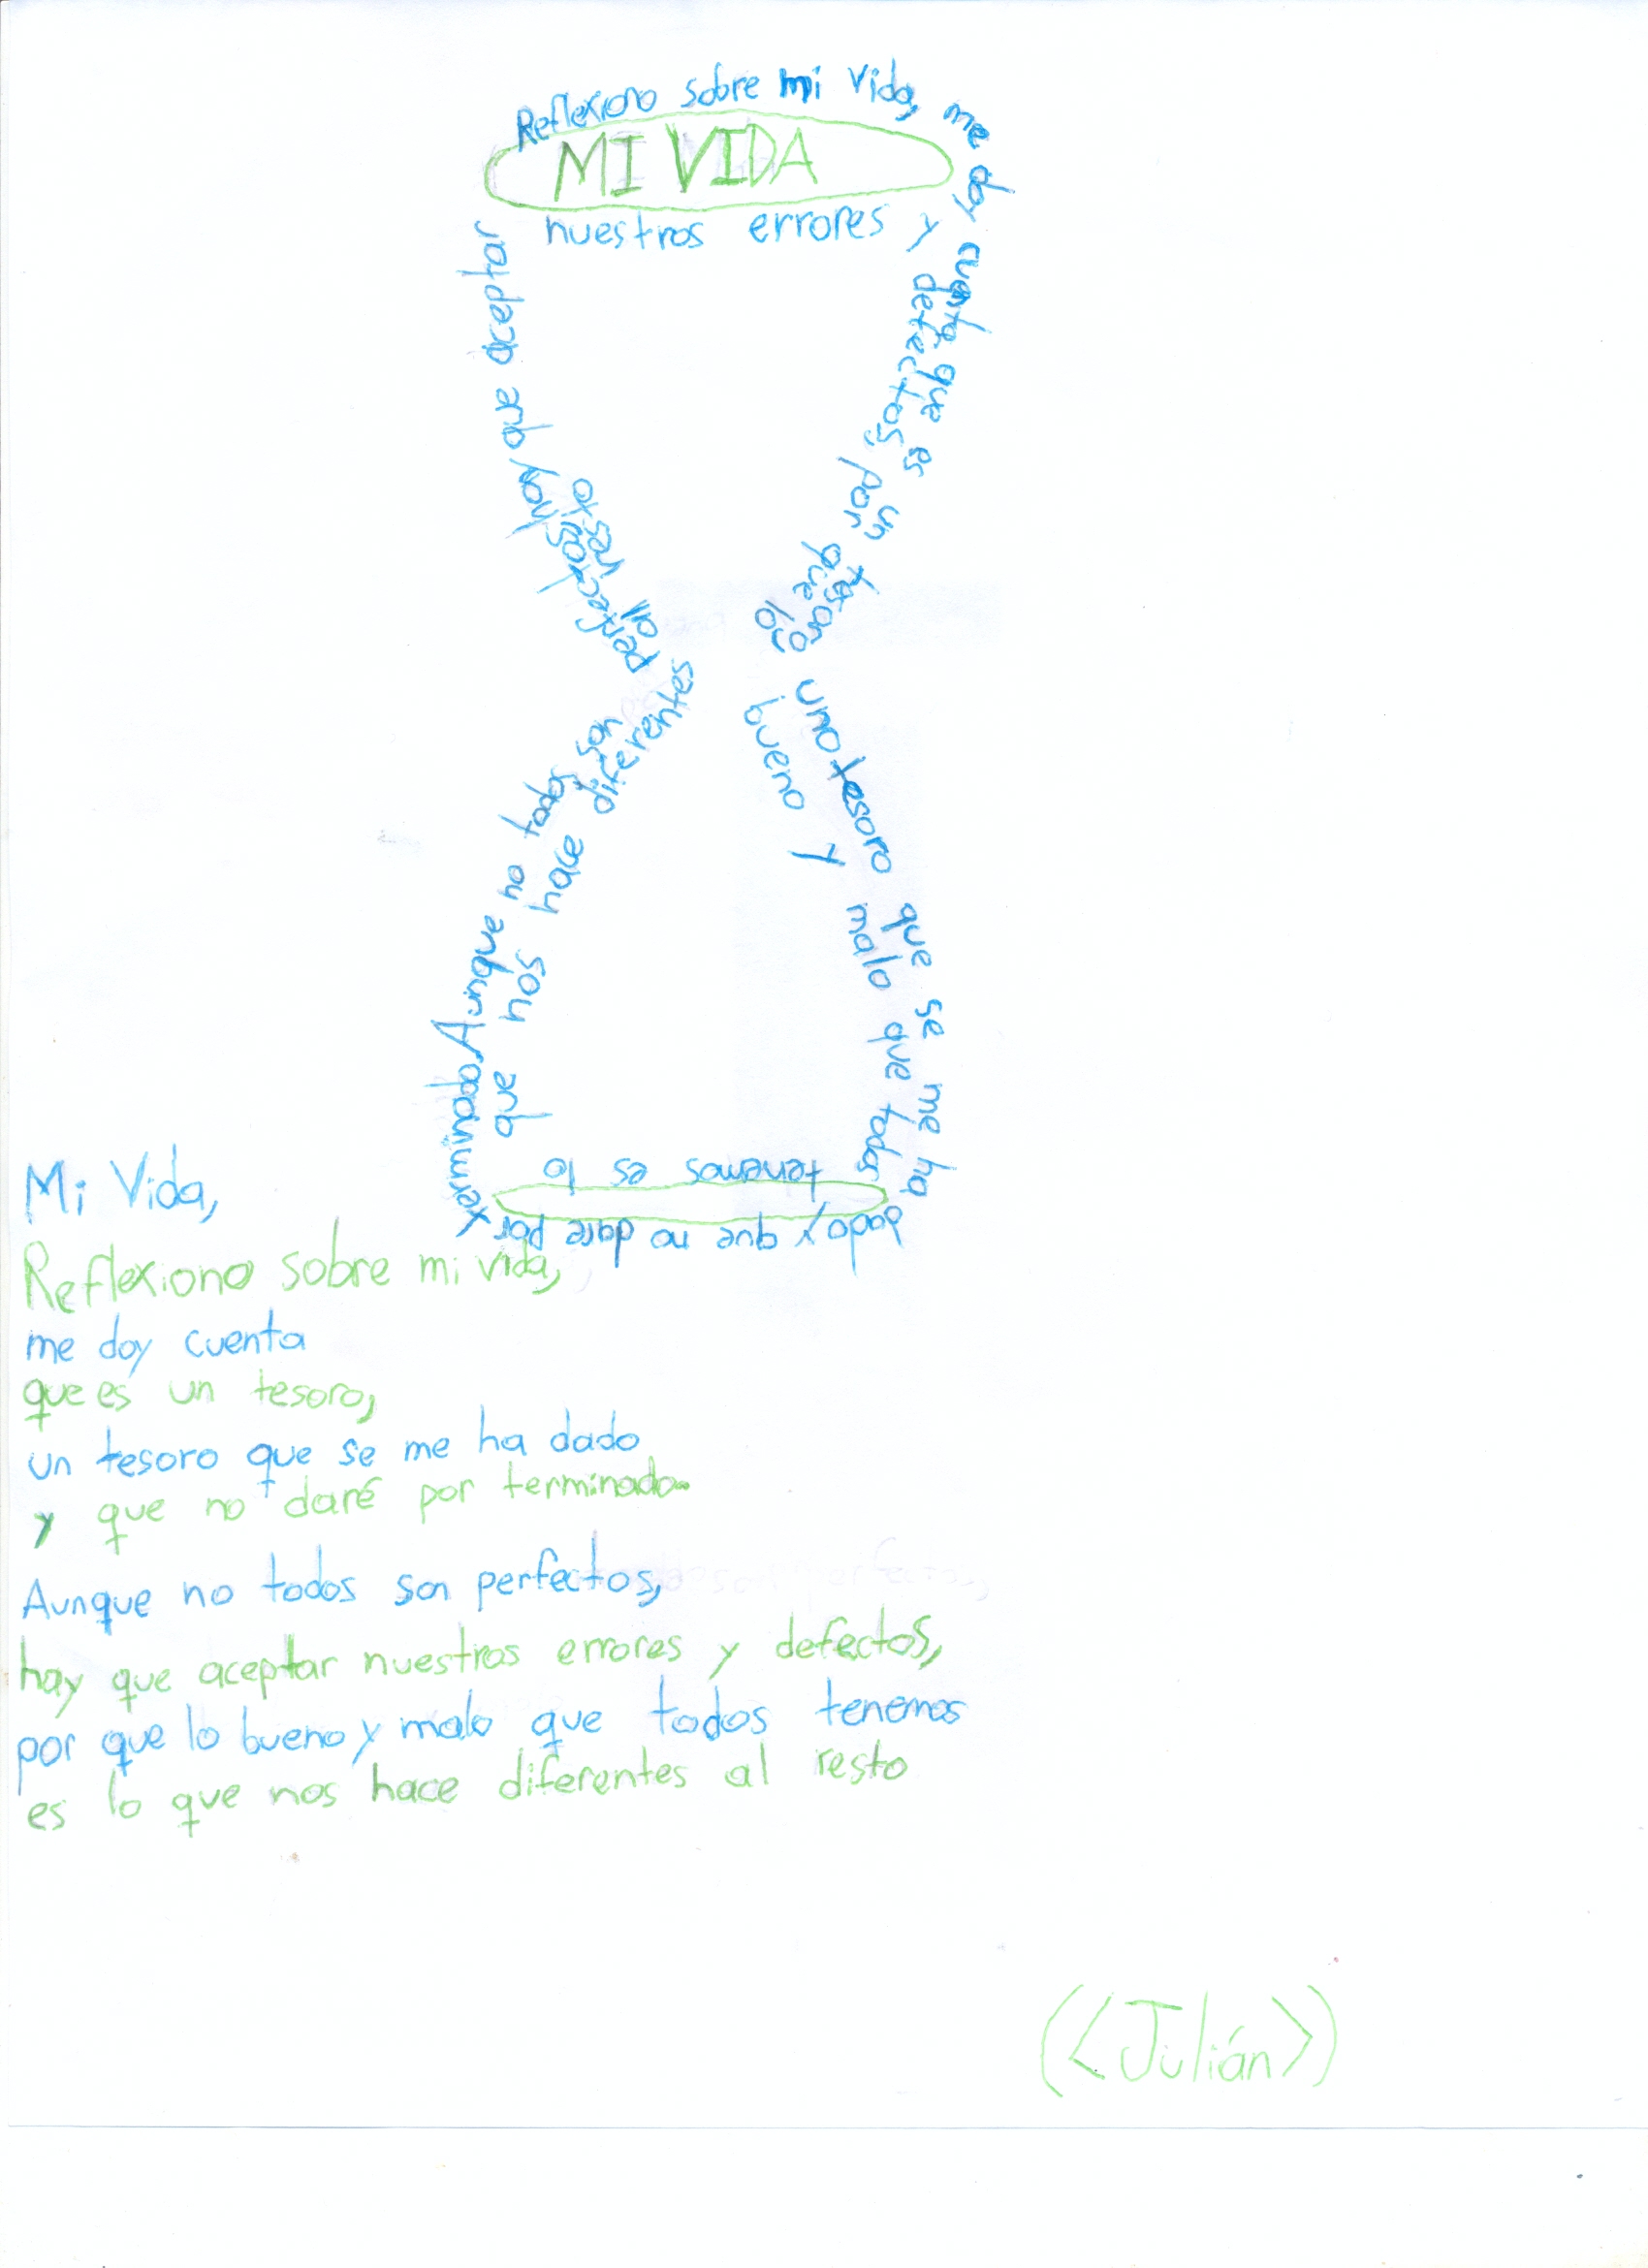 Reflexiono sobre mi vida, me doy cuenta que es un tesoro uno tesoro que se me ha dado y que no dare por terminado, Aunque no todos son perfectos, hay que aceptar
nuestros errores y defectos, por que lo bueno y malo que todos tenemos es lo que nos hace diferentes al resto
MI VIDA
Mi Vida,
Reflexiono sobre mi vida,
me doy cuenta
que es un tesoro,
un tesoro que se me ha dado
y que no daré por terminado.
Aunque no todos son perfectos,
hay que aceptar nuestros errores y defectos,
por que lo bueno y malo que todos tenemos
es lo que nos hace diferentes al resto
(<Julián>)